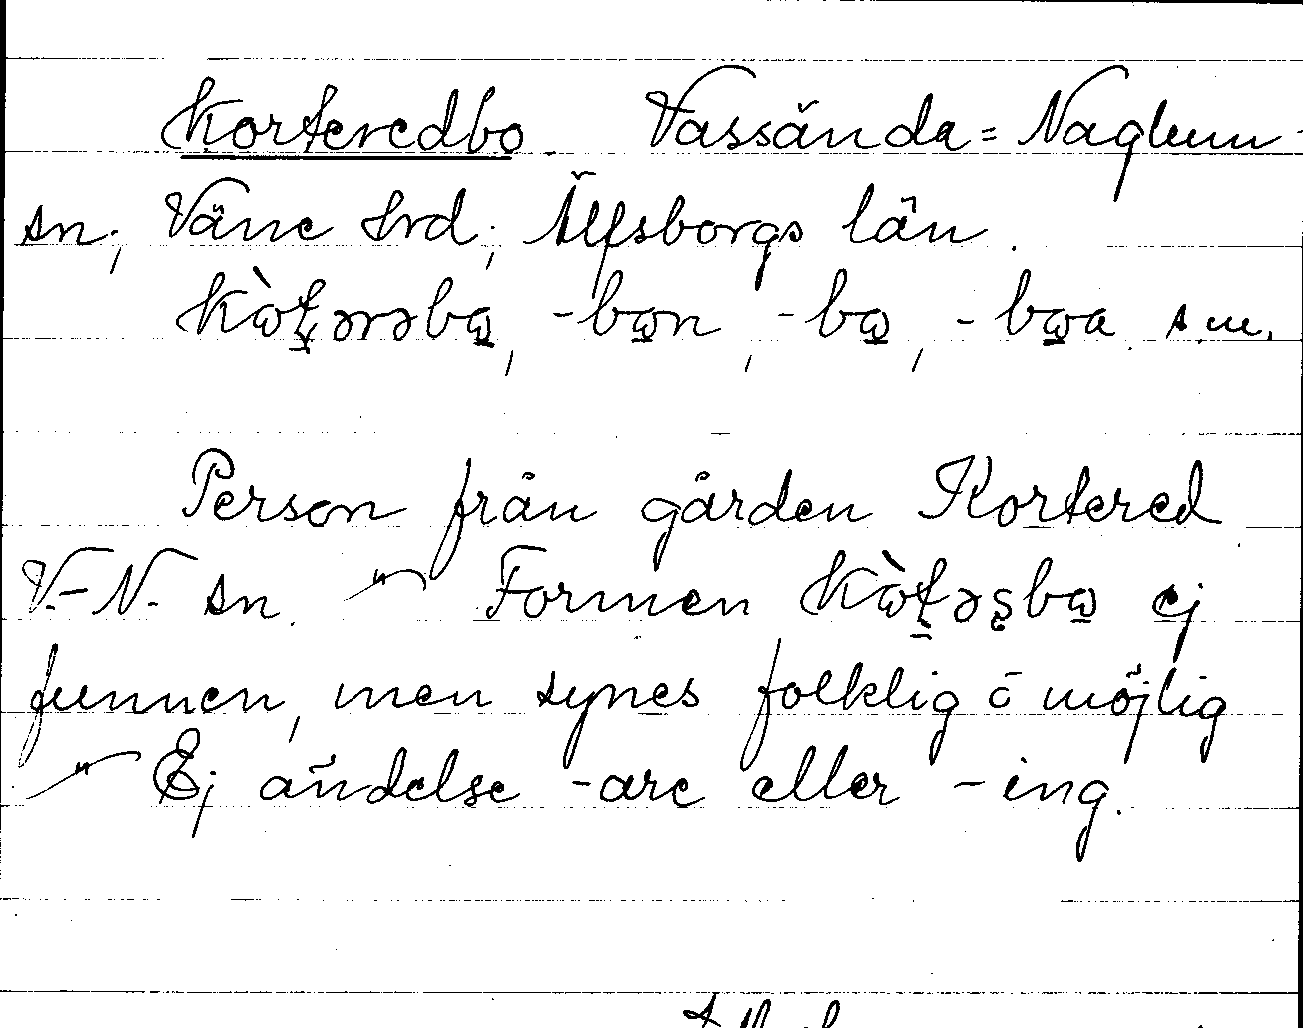 Korteredbo. Vassända=Naglum
sn, Väne hrd, Älfsborgs län.
kὼʈərəbω, -bωn, -bω, -bωa s.m.
Person från gården Kortered
V.-N. sn. –"– Formen kὼʈəʂbω ej
funnen, men synes folklig o möjlig
–"– Ej ändelse -are eller -ing.